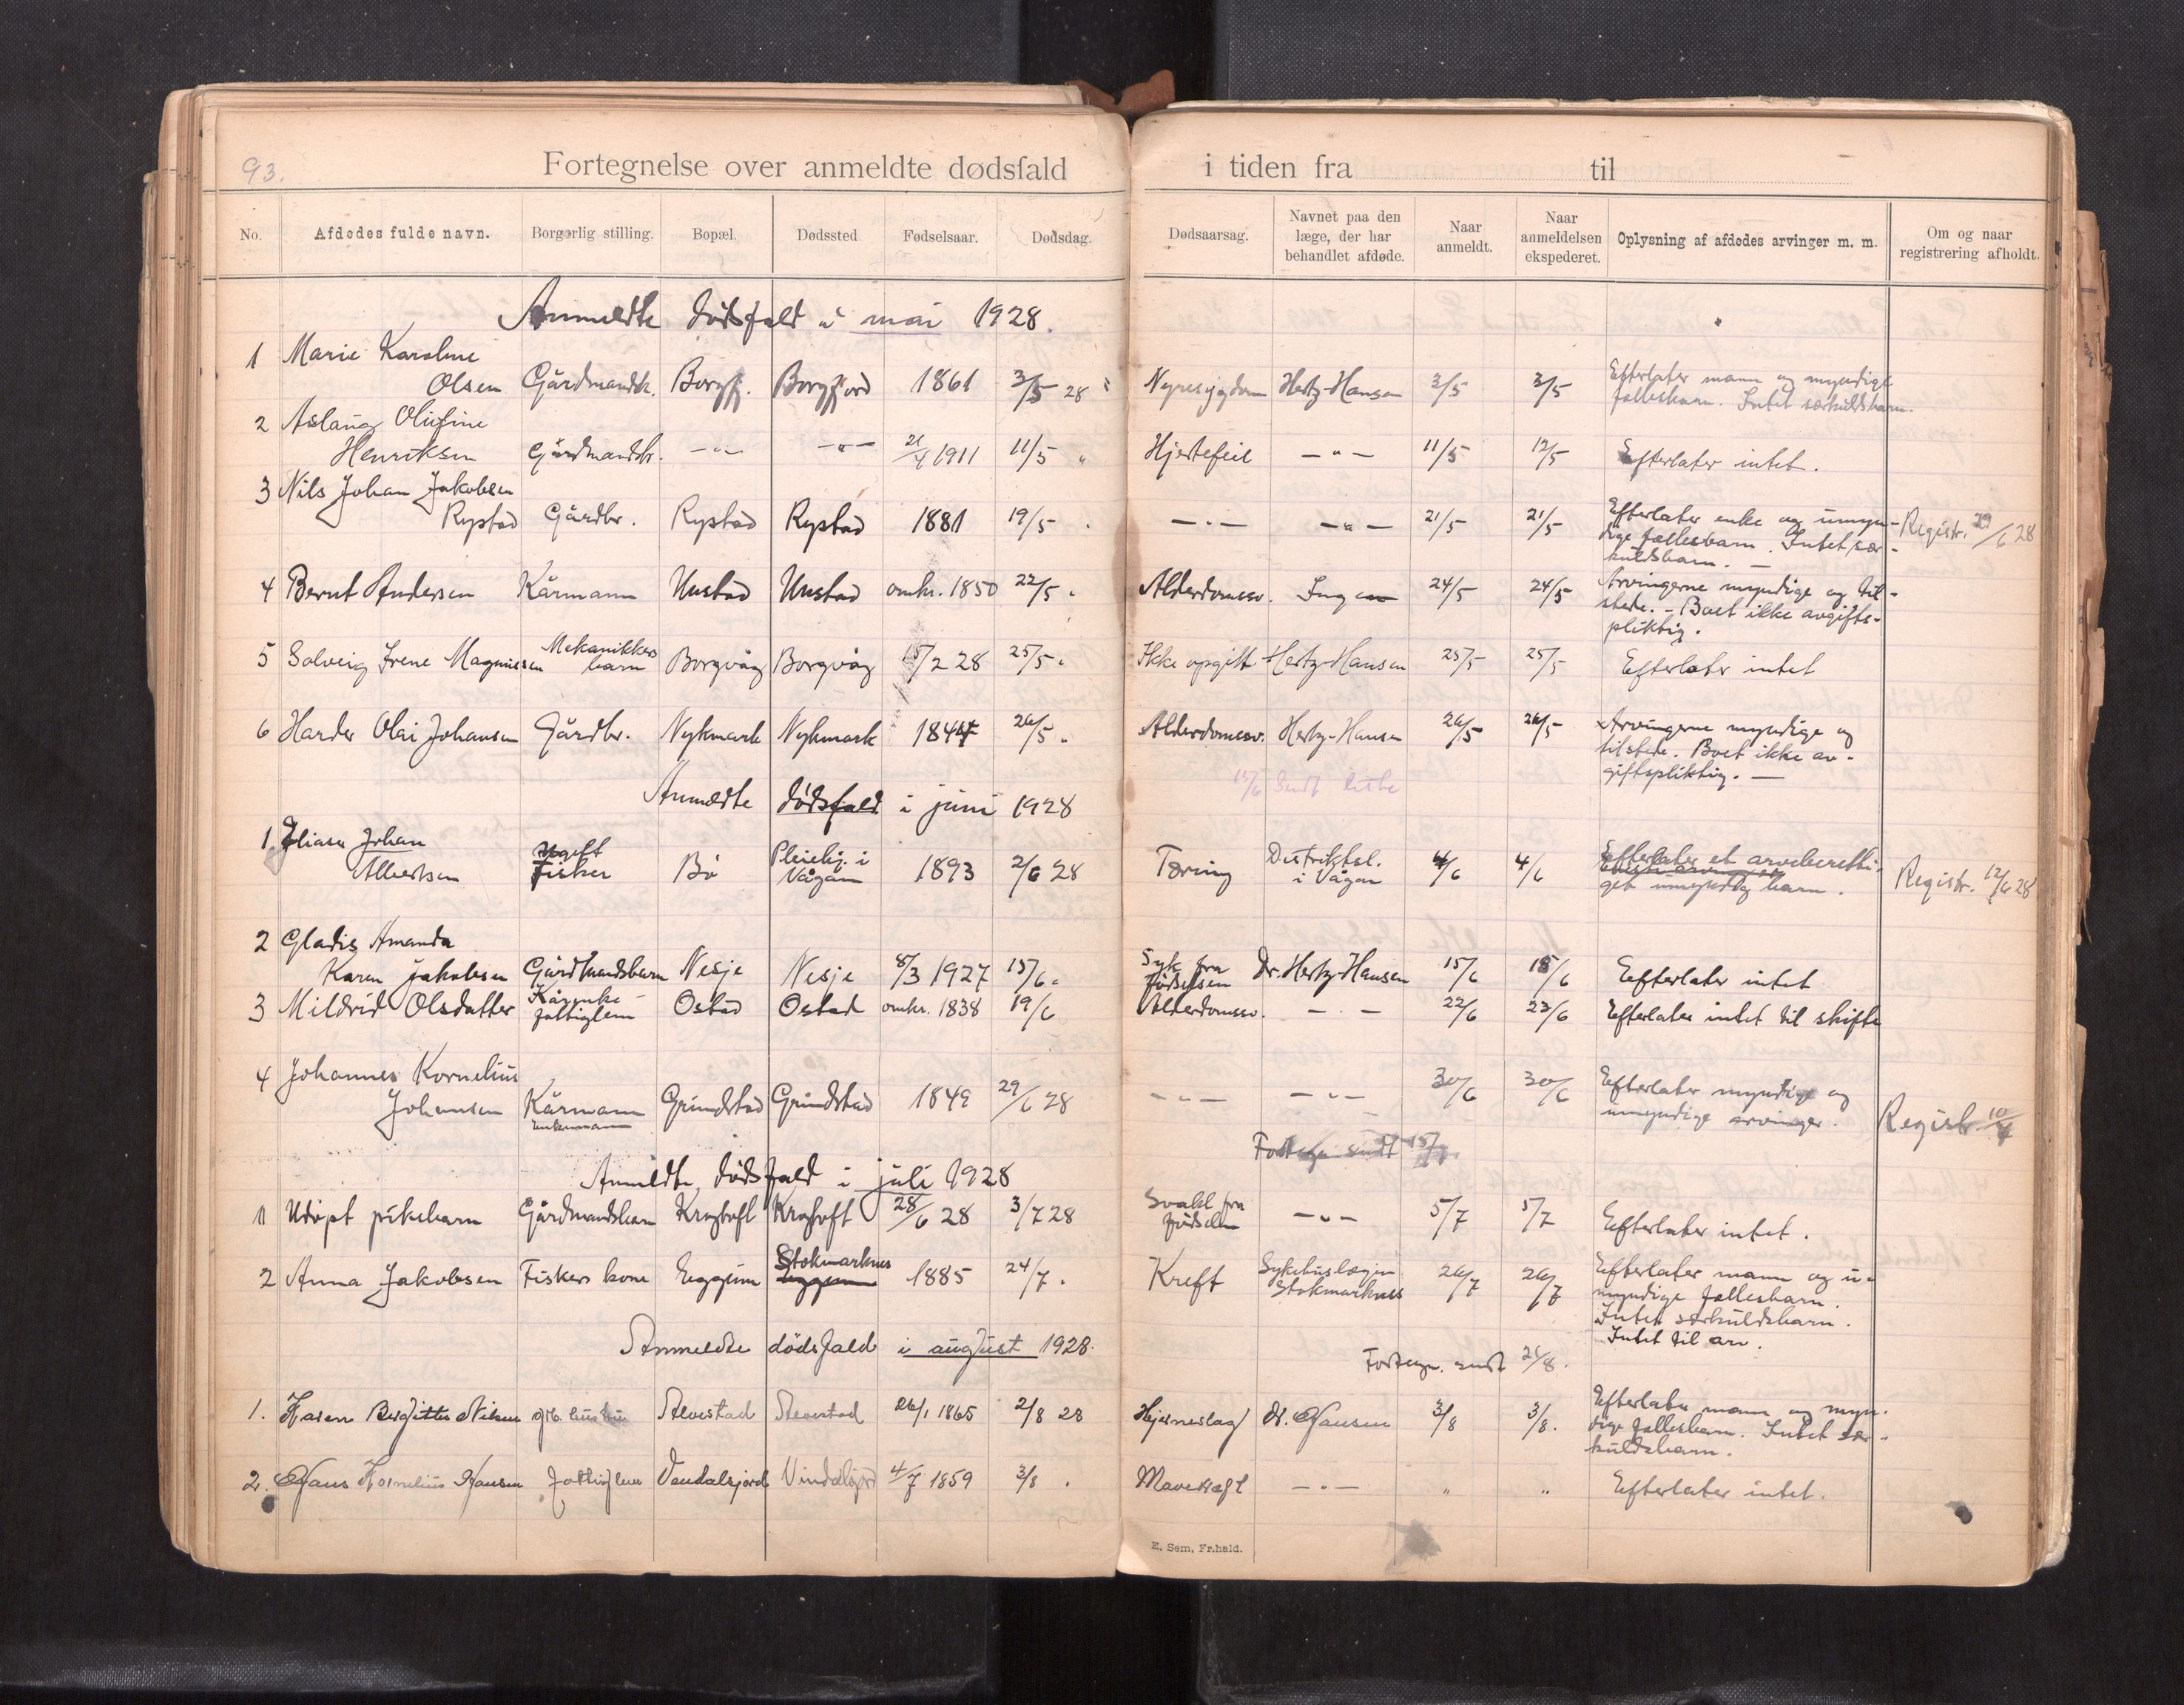 93.
Fortegnelse over anmeldte dødsfald i tiden fra til
No. Afdødes fulde navn. Borgerlig stilling. Bopæl. Dødssted Fødselsaar. Dødsdag. Dødsaarsag. Navnet paa den læge, der har behandlet afdøde. Naar anmeldt. Naar anmeldelsen ekspederet. Oplysning af afdødes arvinger m. m. Om og naar registrering afholdt.
Anmeldte dødsfald i mai 1928.
1 Marie Karoline
Olsen Gårdmandsk. Borgfj. Borgfjord 1861 3/5 28 Nyresygdom Hertz-Hansen 3/5 3/5 Efterlater mann og myndige
fællesbarn. Intet særkuldsbarn.
2 Aslaug Olufine
Henriksen Gårdmandsb. -"- -"- 21/4 1911 11/5 " Hjertefeil -"- 11/5 12/5 Efterlater intet.
3 Nils Johan Jakobsen
Rystad Gårdbr. Rystad Rystad 1881 19/5 -"- -"- 21/5 21/5 Efterlater enke og umyn-
dige fællesbarn. Intet sær-
kuldsbarn. -
Registr. 29/6 28
4 Bernt Andersen Kårmann Unstad Unstad omkr. 1850 22/5 " Alderdomssv. Ingen 24/5 24/5 Arvingerne myndige og til-
stede. - Boet ikke avgifts-
pliktig.
5 Solveig Irene Magnussen Mekanikers
barn Borgvåg Borgvåg 15/2 28 25/5 " Ikke opgitt Hertz-Hansen 25/5 25/5 Efterlater intet
6 Harder Olai Johansen Gårdbr. Nykmark Nykmark 1844 26/5 " Alderdomssv. Hertz-Hansen 26/5 26/5 Arvingerne myndige og
tilstede. Boet ikke av-
giftspliktig. -
15/6 Sendt liste
Anmeldte dødsfald i juni 1928
1 Elias Johan
Albertsen ugift
Fisker Bø Pleiehj. i
Vågan 1893 2/6 28 Tæring Distriktsl.
i Vågan 4/6 4/6 Efterlater et arveberetti-
get umyndig barn.
Registr. 12/6 28
2 Gladis Amanda
Karen Jakobsen Gårdmandsbarn Nesje Nesje 8/3 1927 15/6 " Syk fra
fødselsen Dr. Hertz-Hansen 15/6 15/6 Efterlater intet
3 Mildrid Olsdatter Kårenke-
fattiglem Ostad Ostad omkr. 1838 19/6 Alderdomssv. -"- 22/6 23/6 Efterlater intet til skifte
4 Johannes Kornelius
Johansen Kårmann
Enkemann Grundstad Grundstad 1849 29/6 28 -"- -"- 30/6 30/6 Efterlater myndige og
umyndige arvinger.
Registr. 10/7
sendt 15/7
Anmeldte dødsfald i juli 1928
1 Udøpt pikebarn Gårdmandsbarn Kroghoft Kroghoft 28/6 28 3/7 28 Svakt fra
fødselen -"- 5/7 5/7 Efterlater intet.
2 Anna Jakobsen Fiskers kone Eggum Stokmarknes
Eggum 1885 24/7 " Kreft Sykehuslægen
Stokmarknes 26/7 26/7 Efterlater mann og u-
myndige fællesbarn.
Intet særkuldsbarn.
Intet til arv.
Anmeldte dødsfald i august 1928.
Fortegn. sendt 21/8.
1. Karen Bergitte Nilsen grb. hustru Stevestad Stevestad 26/1 1865 2/8 28 Hjerneslag dr. Hansen 3/8 3/8. Efterlater mann og myn-
dige fællesbarn. Intet sær-
kuldsbarn.
2. Hans Kornelius Hansen Fattiglem Vendalsjord Vindalsjord 4/7 1859 3/8 " Mavekræft -"- " " Efterlater intet.
E. Sem, Fr.hald.